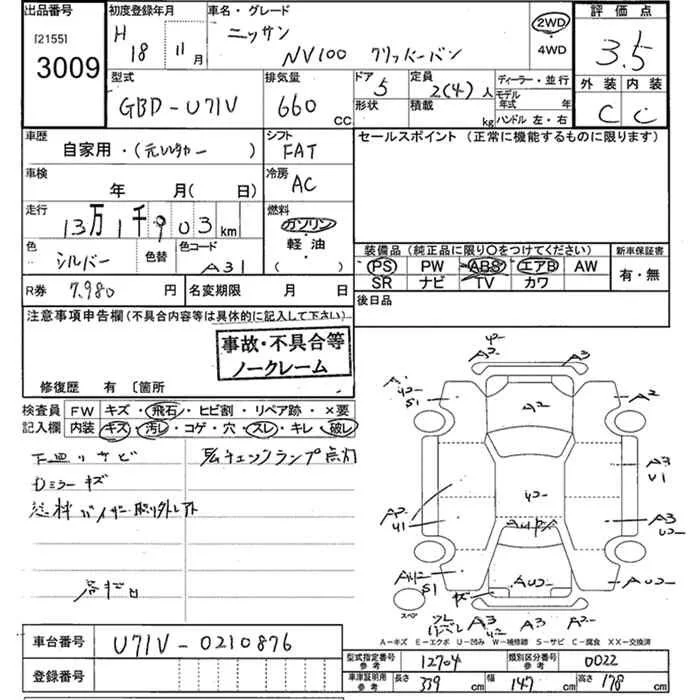 出品番号 初度登録年月 車名・グレード 評価点
[2155] H 18 11月 ニッサン 2WD 3.5
3009 NV100 クリッパーバン 4WD
型式 排気量 ドア 定員 ディーラー・並行 外装 内装
GBD-U71V 660 CC 5 2(4)人 モデル年式 年 C C
形状 積載 kg ハンドル 左・右
車歴 シフト セールスポイント (正常に機能するものに限ります)
自家用・(元レンタカー) FAT
車検 冷房
年 月(日) AC
走行 燃料
13万1千903km ガソリン
色 色替 色コード 軽油 装備品(純正品に限り〇をつけてください) 新車保証書
シルバー A31 ( ) PS PW ABS エアB AW 有・無
SR ナビ TV カワ
R券 7,980円 名変期限 月 日 後日品
注意事項申告欄(不具合内容等は具体的に記入して下さい)
事故・不具合等
ノークレーム
修復歴 有 〔箇所
検査員 FW キズ・飛石・ヒビ割・リペア跡・×要
記入欄 内装 キズ・汚レ・コゲ・穴・スレ・キレ・破レ
下廻りサビ チェックランプ点灯
Dミラーキズ
バイザー取り外し
A2 A3
A2 A2
S1
A3
U1
A2 A3
U1
S1 AU2 AU2
キズ
A3 A3 A2
スペア
A-キズ E-エクボ U-凹み W-補修跡 S-サビ C-腐食 XX-交換済
車台番号 U71V-0210876
型式指定番号 参考 12704 類別区分番号 参考 0022
登録番号 車庫証明用 参考 長さ 339cm 幅 147cm 高さ 178cm